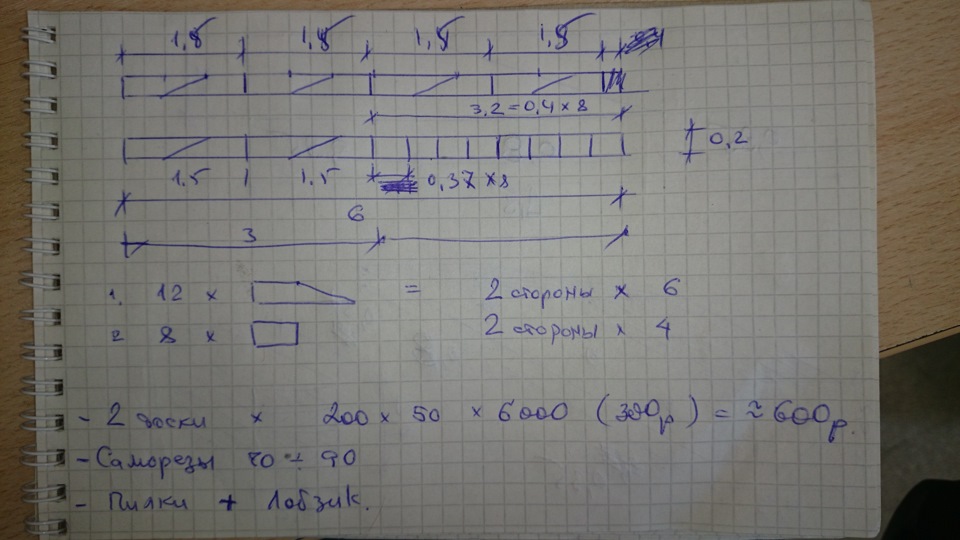 1,5 1,5 1,5 1,5
3,2 = 0,4 × 8
0,2
1.5 1.5 0,37 × 8
6
3
1. 12 × = 2 стороны × 6
2 8 × 2 стороны × 4
- 2 доски × 200 × 50 × 6000 (300р) = ≈ 600р.
- Саморезы 70 ÷ 90
- Пилки + Лобзик.